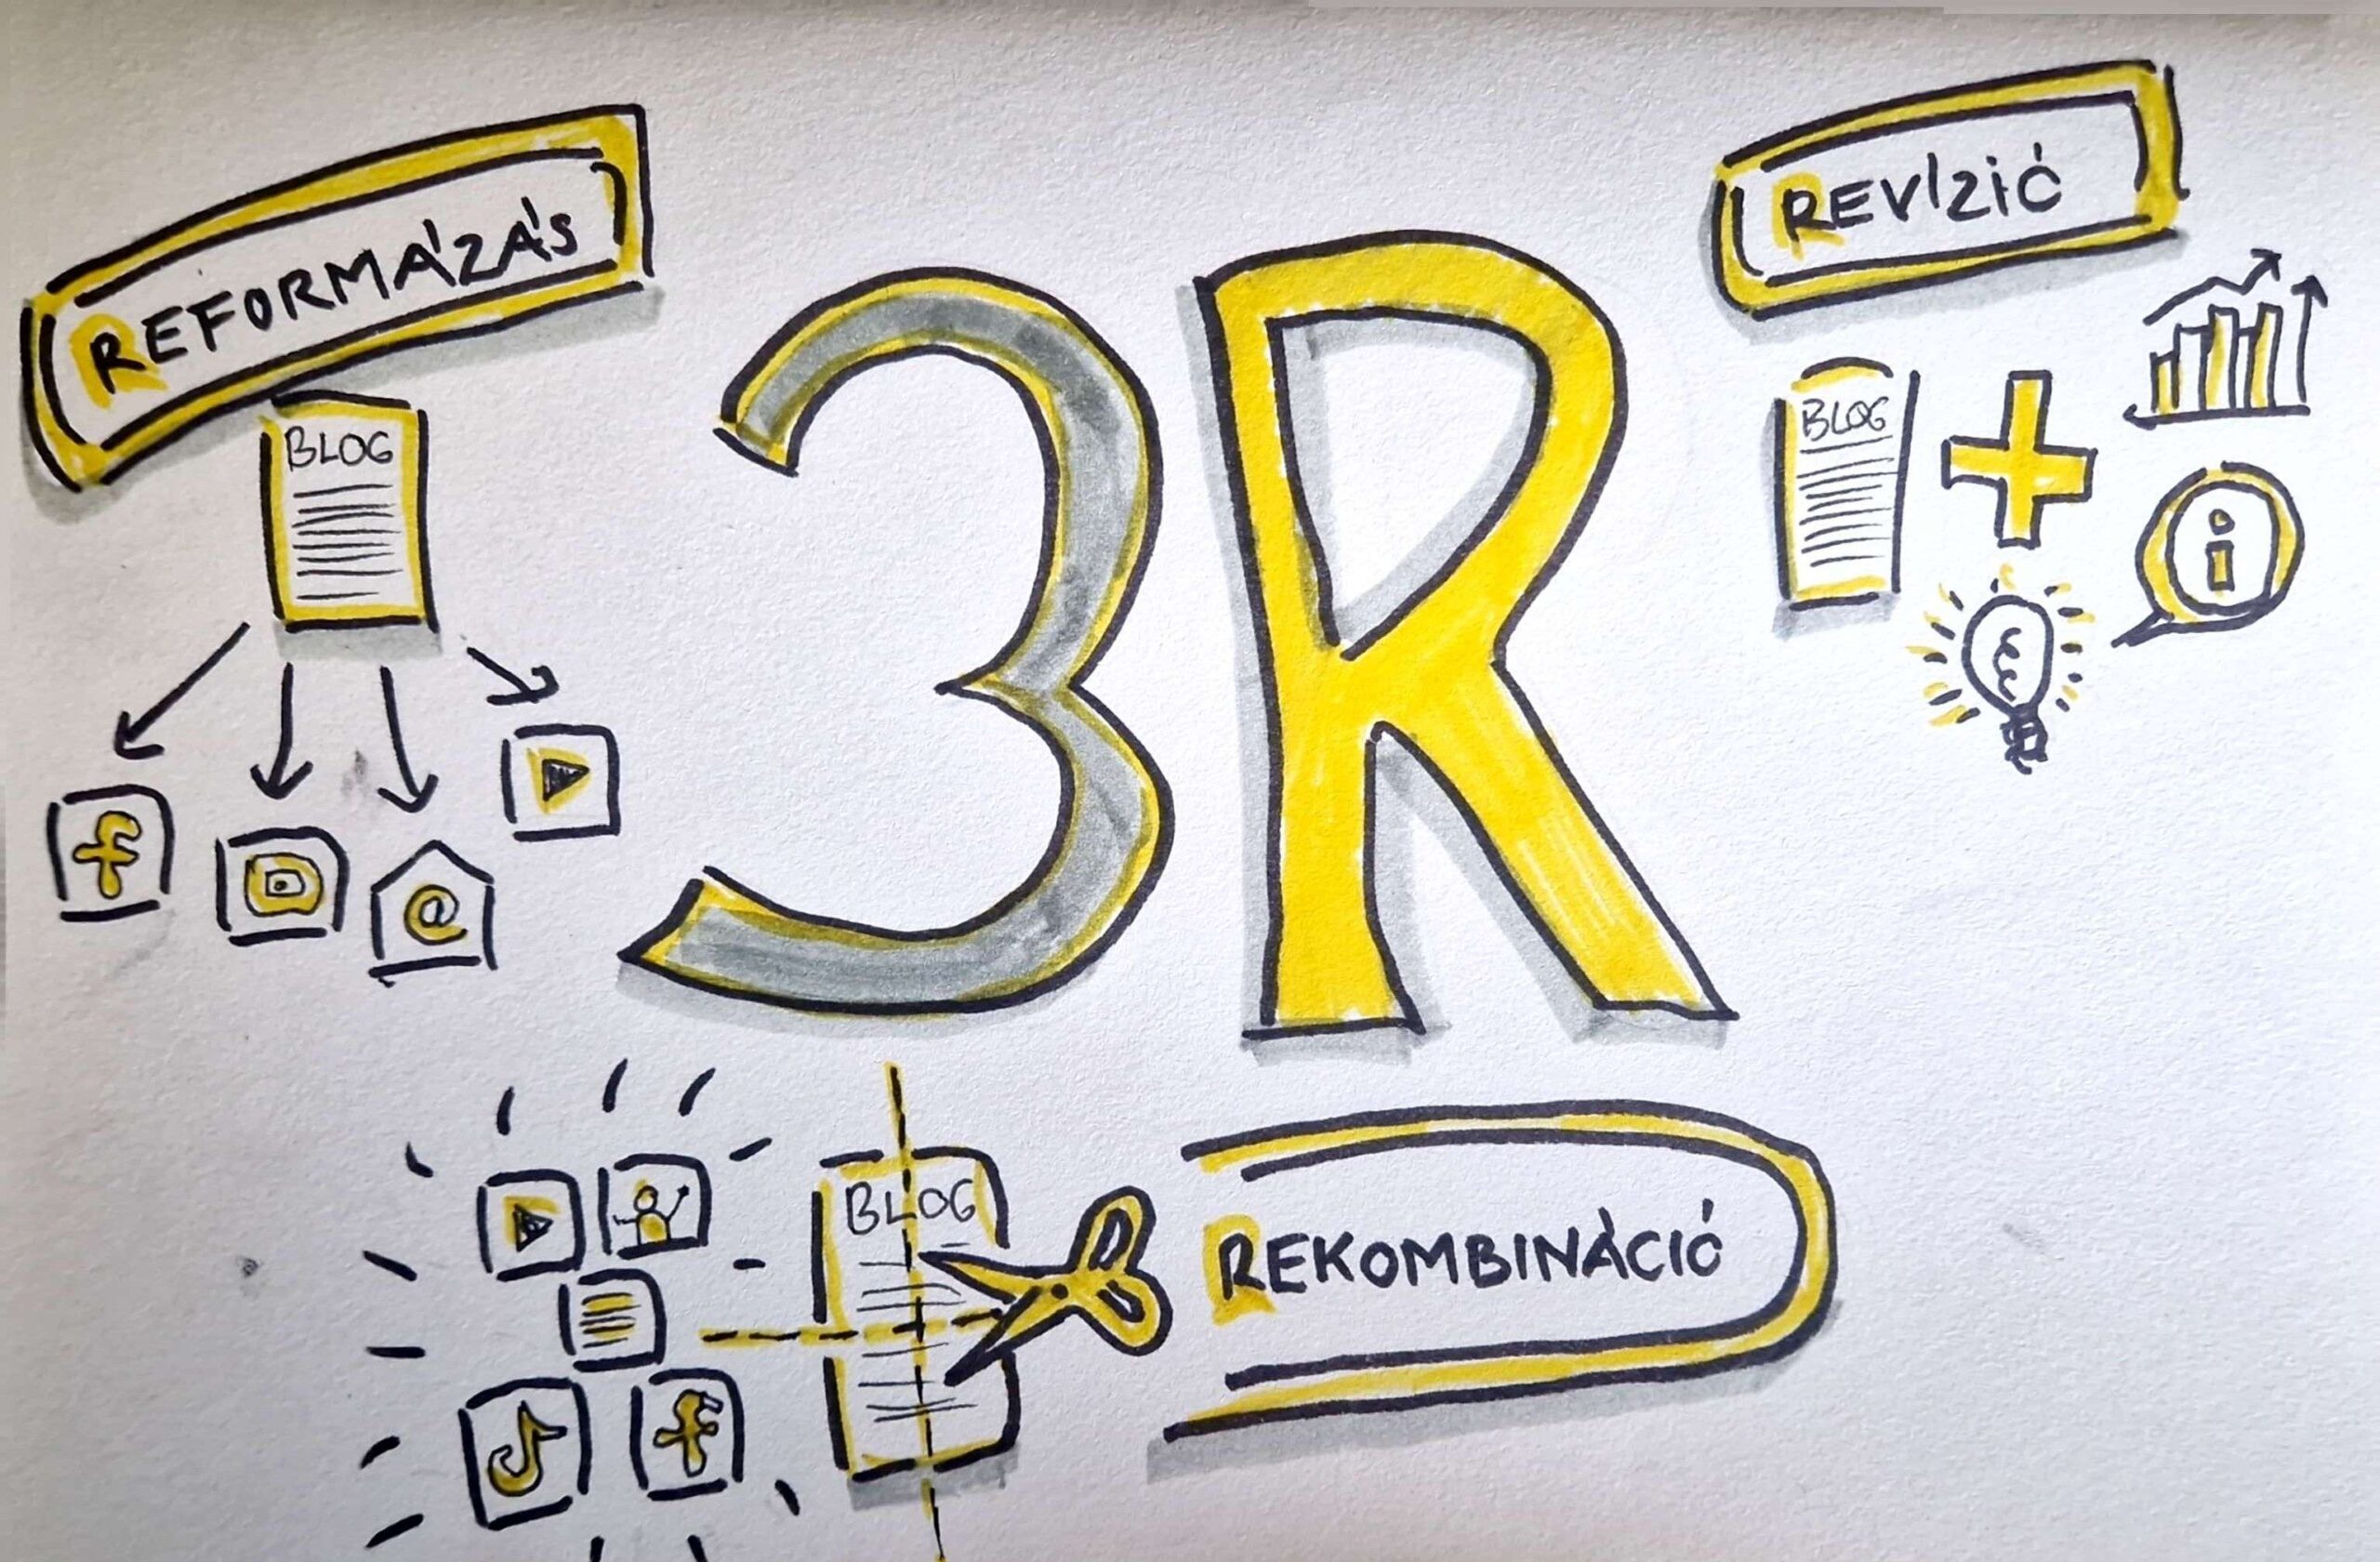 REFORMÁZÁS
BLOG
f
@
3R
REVÍZIÓ
BLOG
i
BLOG
f
REKOMBINÁCIÓ